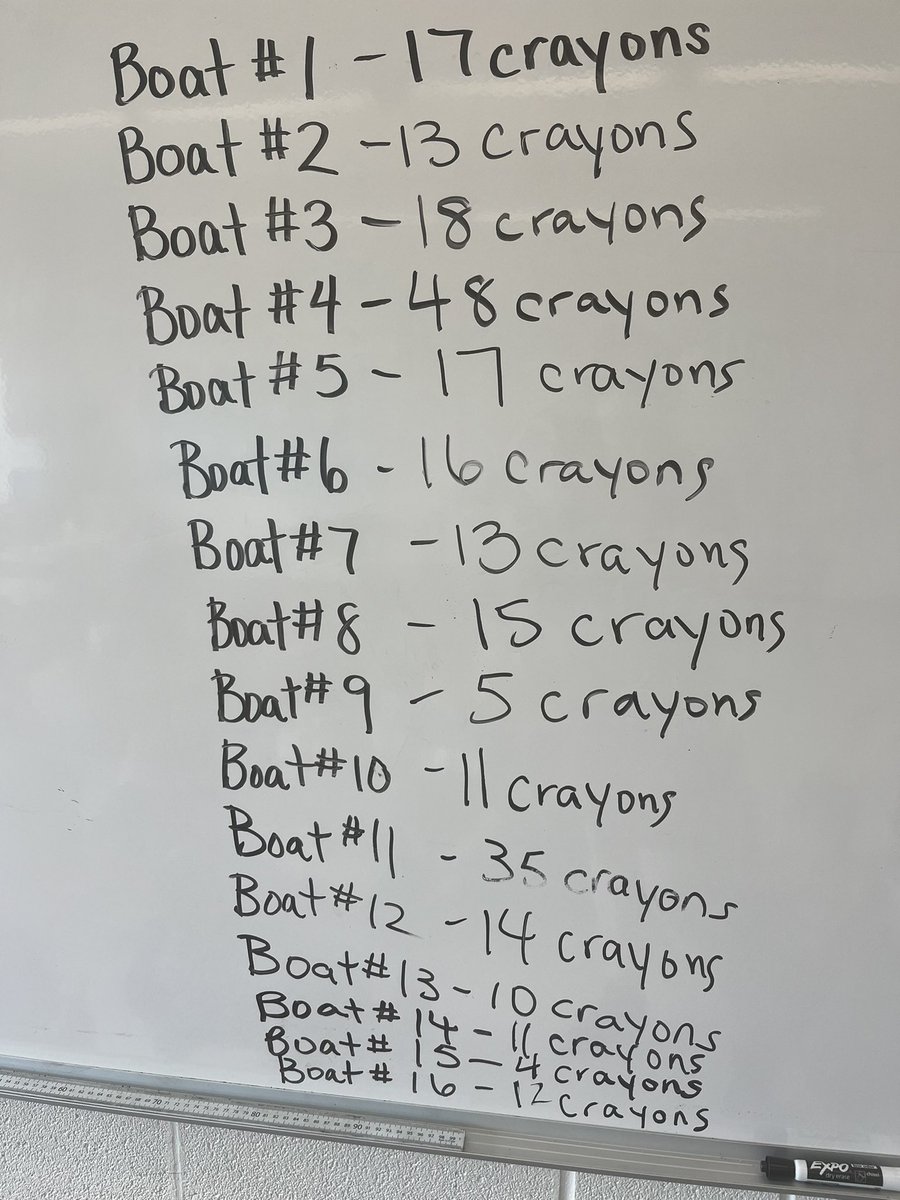 Boat #1 - 17 crayons
Boat #2 - 13 crayons
Boat #3 - 18 crayons
Boat #4 - 48 crayons
Boat #5 - 17 crayons
Boat #6 - 16 crayons
Boat #7 - 13 crayons
Boat #8 - 15 crayons
Boat #9 - 5 crayons
Boat #10 - 11 crayons
Boat #11 - 35 crayons
Boat #12 - 14 crayons
Boat #13 - 10 crayons
Boat #14 - 11 crayons
Boat #15 - 4 crayons
Boat #16 - 12 crayons
EXPO
dry erase